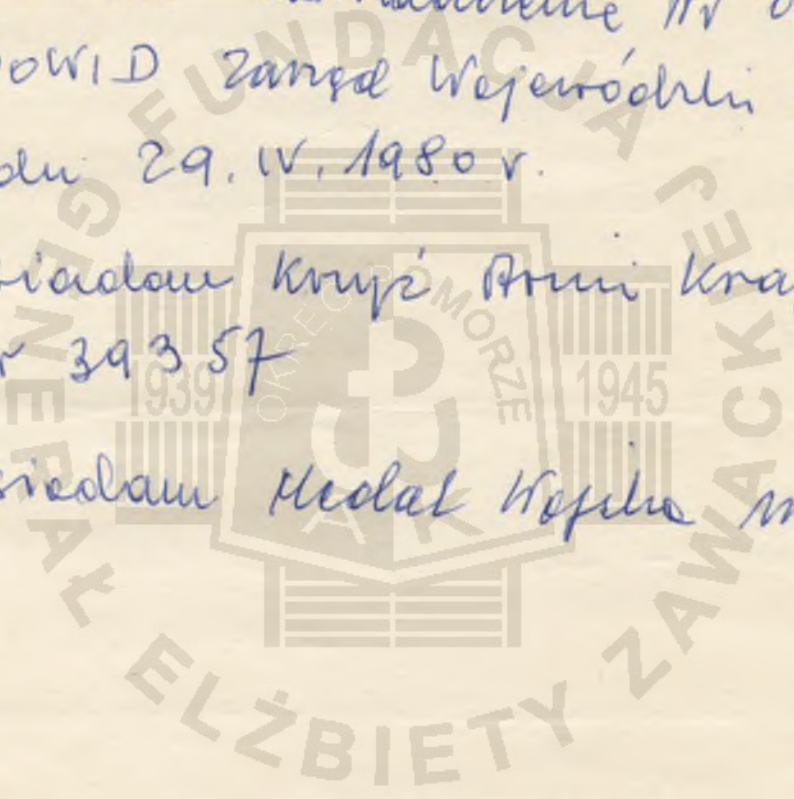 Nr
OWID Zarząd Wojewódzki
29.IV.1980 r.
iadam Krzyż Armii Kra
r 39357
siadam Medal Wojska
FUNDACJA
GENERAŁ ELŻBIETY ZAWACKIEJ
OKRĘG POMORZE
1939 1945
AK